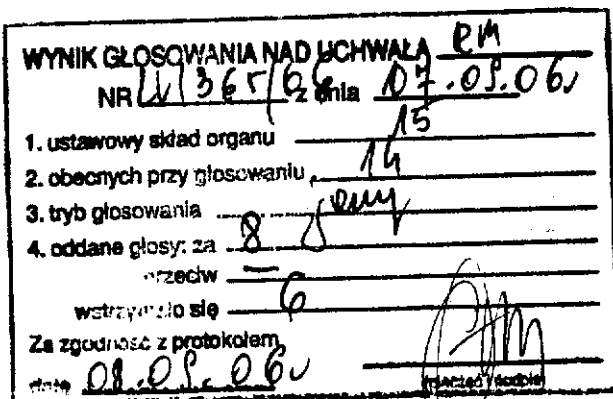 WYNIK GŁOSOWANIA NAD UCHWAŁĄ RM
NR LV/365/06 z dnia 07.09.06r
1. ustawowy skład organu 15
2. obecnych przy głosowaniu 14
3. tryb głosowania jawny
4. oddane głosy: za 8
przeciw —
wstrzymało się 6
Za zgodność z protokołem
data 08.09.06r